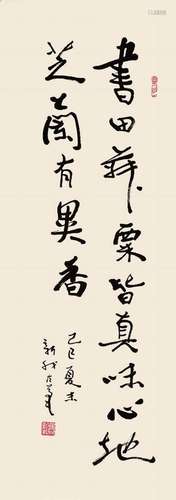 書田菽粟皆真味心地
芝蘭有異香
己巳夏末
新我左筆